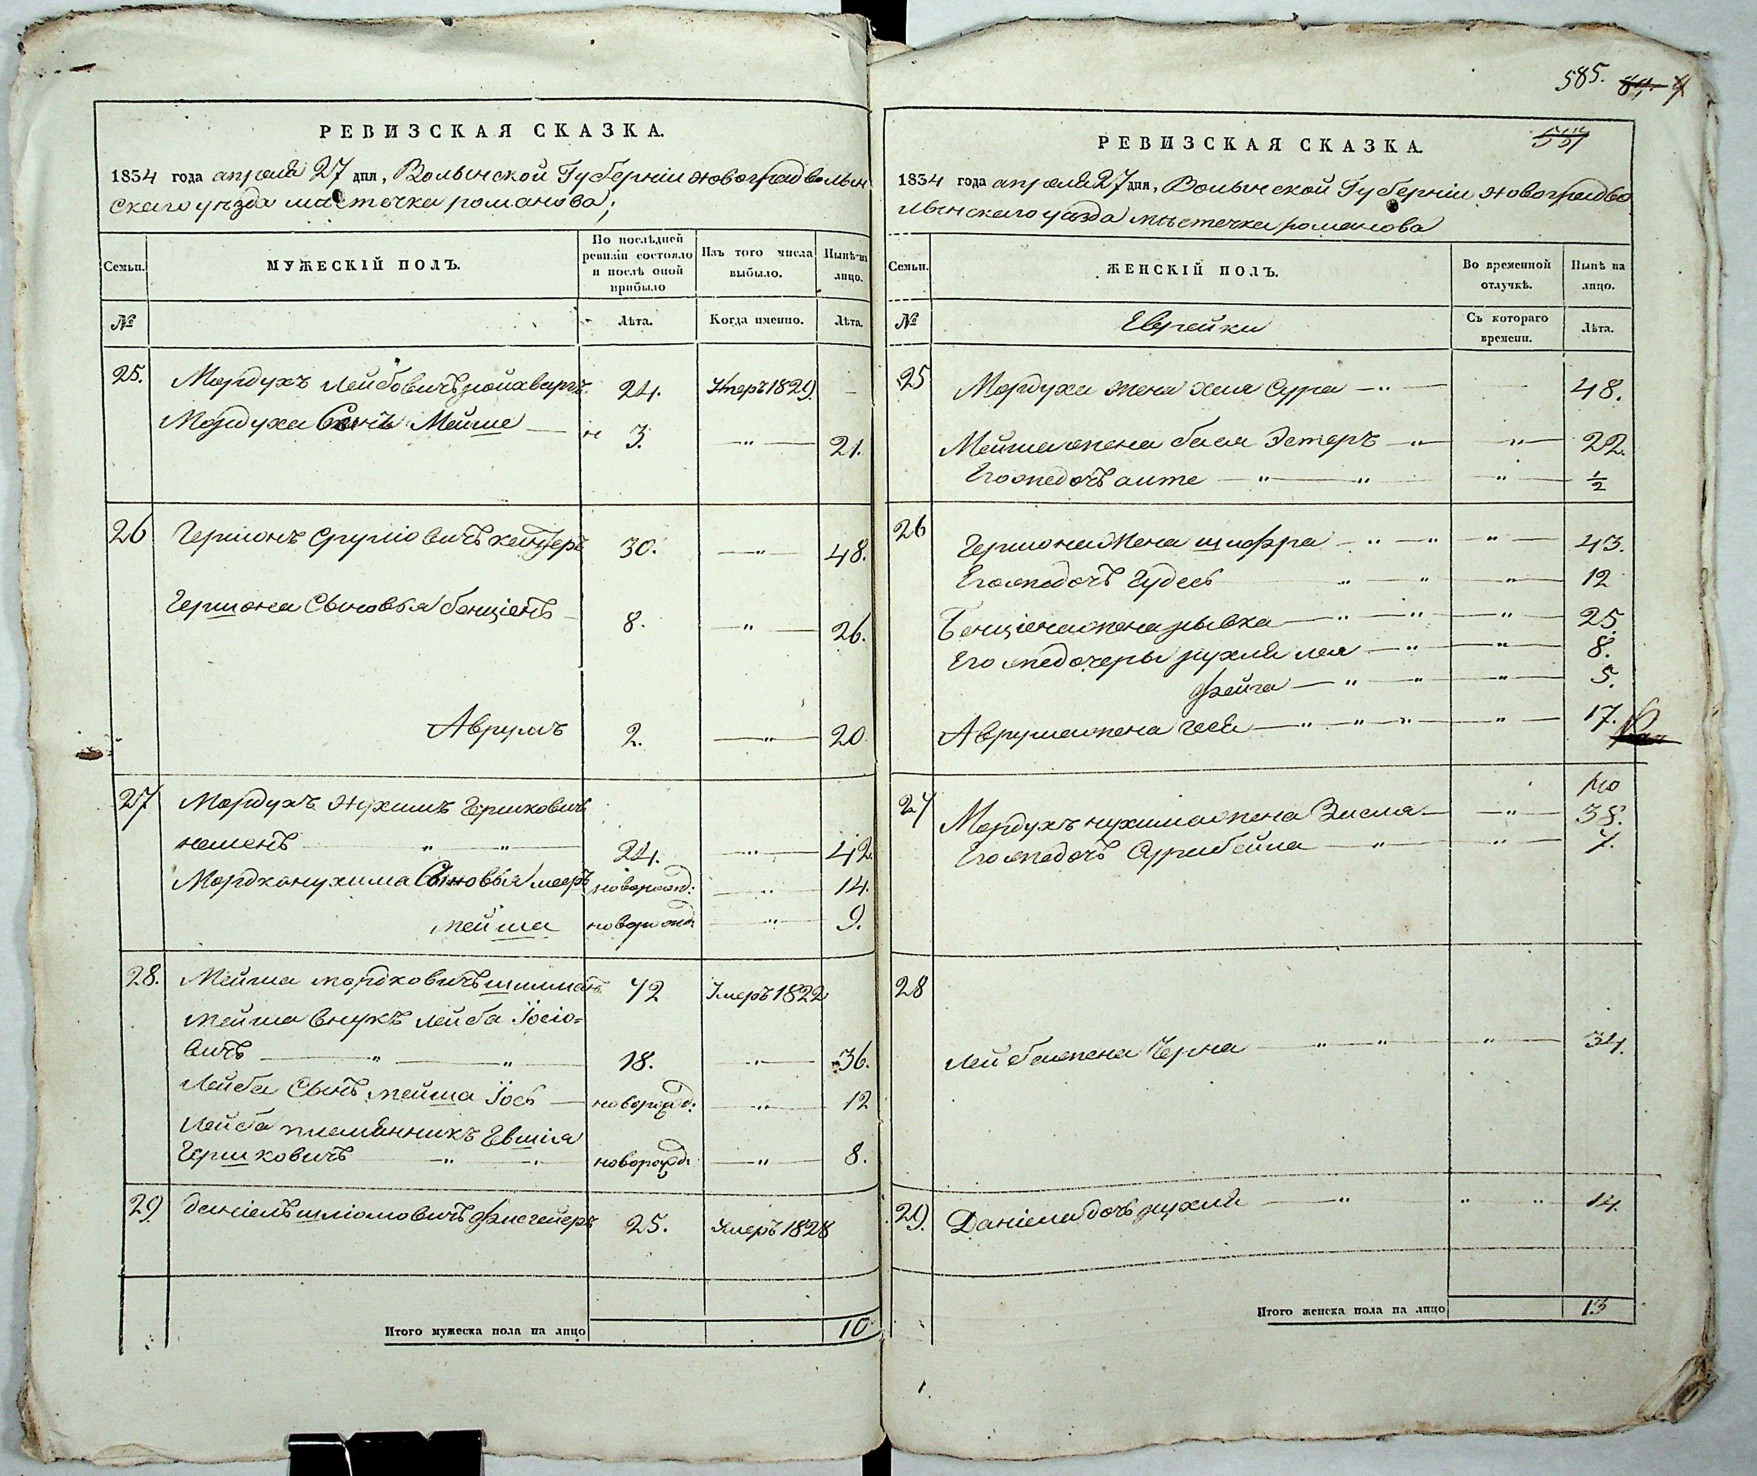 РЕВИЗСКАЯ СКАЗКА.
1834 года апреля 27 дня, Волынской Губерніи новоградволын
скаго уѣзда местечка романова;
Семьи.
МУЖЕСКІЙ ПОЛЪ.
По послѣдней ревизіи состояло и послѣ оной прибыло
Изъ того числа выбыло.
Нынѣ на лицо.
№
Лѣта.
Когда именно.
Лѣта.
25. Мордухъ Лейбовичъ 24. Умеръ 1829 -
Мордуха Сынъ Мейше — и 3. — " — 21.
26 Гершонъ Сруліовичъ 30. — " — 48.
Гершона Сыновья бенціенъ — 8. — " — 26.
Аврумъ 2. — " — 20
27 Мордухъ Нухимъ Гершковичъ
" " 24. — " — 42.
Мордхонухима Сыновья мееръ новорожд: — " — 14.
мейша новорожд: — " — 9.
28. Мейша мордковичъ 72 Умеръ 1822
мейша внукъ лейба Іосіо=
вичъ — " — " — 18. — " — 36.
Лейба Сынъ мейша Іось — новорожд: — " — 12
Лейба племянникъ Евшія
Гершковичъ — " — " — новорожд: — " — 8.
29. даніель шліомовичъ 25. Умеръ 1828
Итого мужеска пола на лицо 10
585.
557
РЕВИЗСКАЯ СКАЗКА.
1834 года апреля 27 дня, Волынской Губерніи новоградво
лынскаго уѣзда мѣстечка романова
Семьи.
ЖЕНСКІЙ ПОЛЪ.
Во временной отлучкѣ.
Нынѣ на лицо.
№
Еврейки
Съ котораго времени.
Лѣта.
25 Мордуха жена хая сура — " — 48.
Мейша жена бася Эстеръ — " — " — 22.
Его же дочь — " — " — " — ½
26 Гершона жена шифра — " — " — " — 43.
Его же дочь Гудесъ " " — " — 12
Бенціена жена рывка — " — " — " — 25.
Его же дочери рухля лея — " — " — 8.
фейга — " — " — " — 5.
Аврума жена — " — " — " — " — 17.
27 Мордухъ нухима жена Висля — " — 38.
Его же дочь Сурабейла — " — " — 7.
28
Лейба жена Черна — " — " — " — 34.
29. Даніеля дочь рухля — " " " — 14.
Итого женска пола на лицо 13